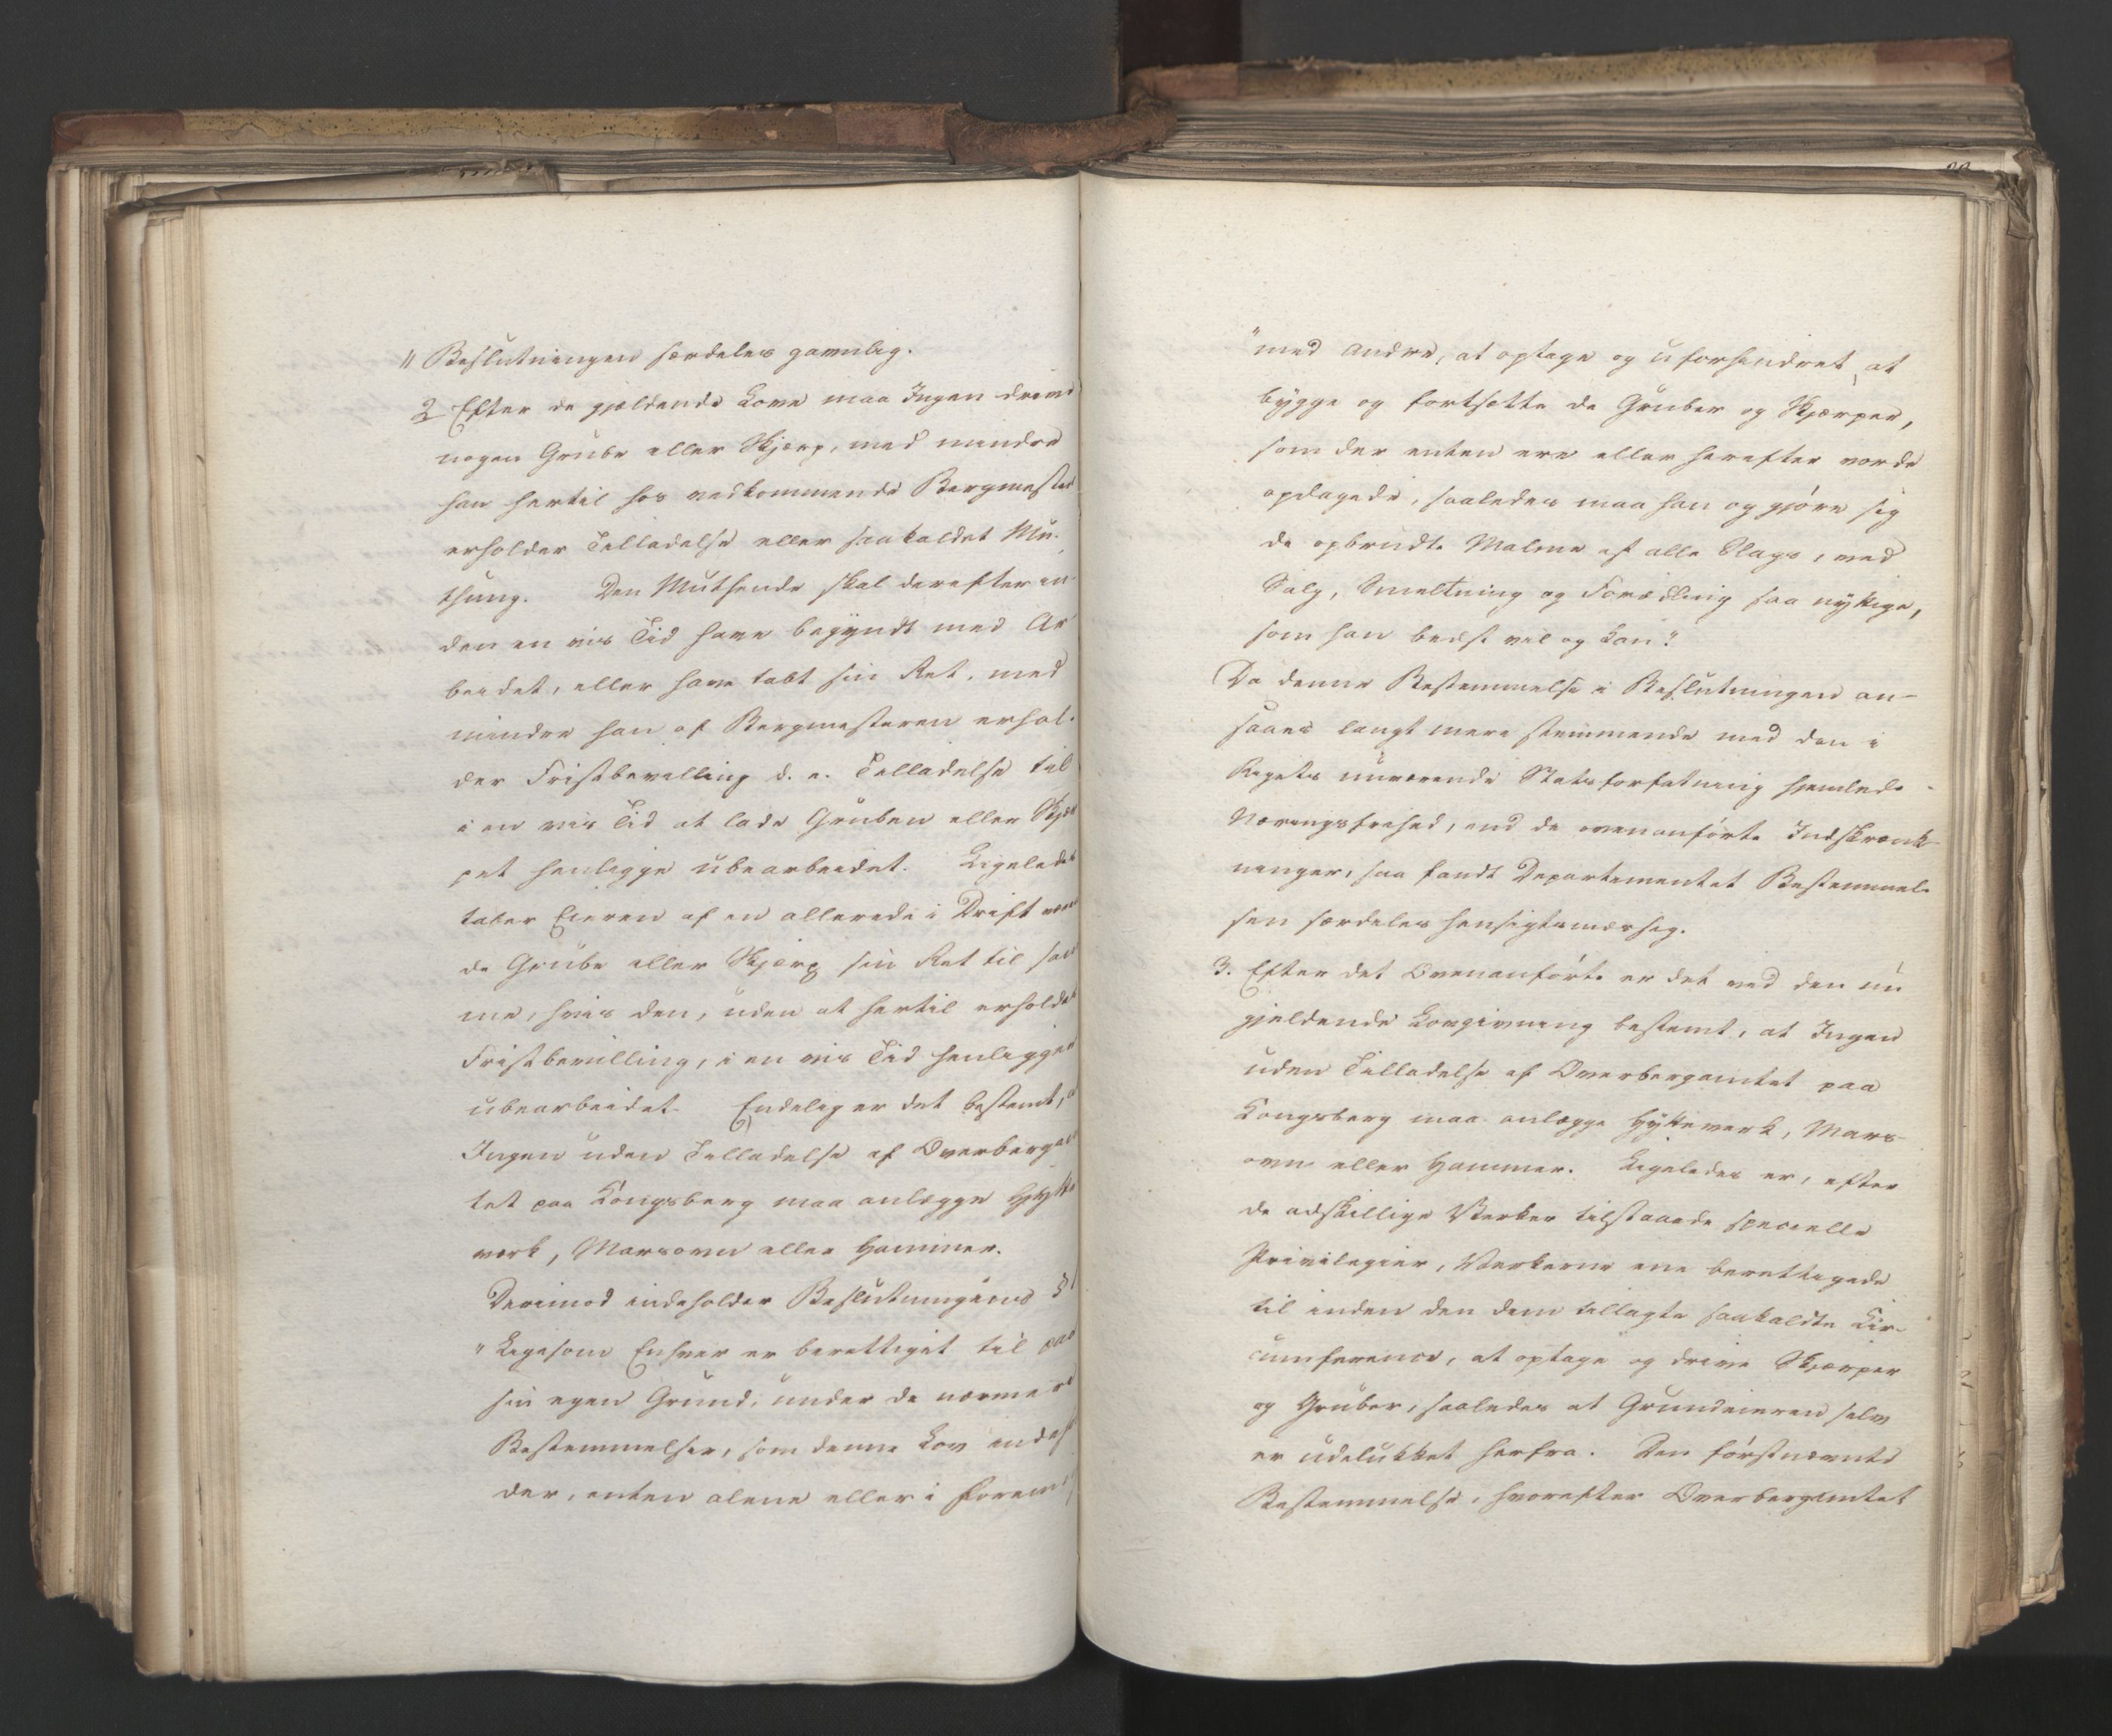 " Beslutningen særdeles gavnlig.
2 Efter de gjældende Love maa Ingen drive
nogen Grube eller Skjærp, med mindre
han hertil hos vedkommende Bergmester
erholder Tilladelse eller saakaldet Mu-
thung. Den Muthende skal derefter in-
den en vis Tid have begyndt med Ar
beidet, eller have tabt sin Ret, med
mindre han af Bergmesteren erhol-
der Fristbevilling d. e. Tilladelse til
i en vis Tid at lade Gruben eller Skjær
pet henligge ubearbeidet. Ligeledes
taber Eieren af en allerede i Drift være
de Grube eller Skjærp sin Ret til sam
me, hvis den, uden at hertil erholdes
Fristbevilling, i en vis Tid henligger
ubearbeidet. Endelig er det bestemt, a
Ingen uden Tilladelse af Overbergam
tet paa Kongsberg maa anlægge Hytte
værk, Marsovn eller Hammer.
Derimod indeholder Beslutningens § 1
" Ligesom Enhver er berettiget til paa
sin egen Grund, under de nærmere
Bestemmelser, som denne Lov indehol
der, enten alene eller i Foreni
" med Andre, at optage og uforhindret at
bygge og fortsætte de Gruber og Skjærper,
som der enten ere eller herefter vorde
opdagede, saaledes maa han og gjøre sig
de opbrudte Malme af alle Slags, ved
Salg, Smeltning og Forædling saa nyttige,
som han bedst vil og kan".
Da denne Bestemmelse i Beslutningen an-
saaes langt mere stemmende med den i
Rigets nuværende Statsforfatning hjemlede
Næringsfrihed, end de ovenanførte Indskrænk-
ninger, saa fandt Departementet Bestemmel-
sen særdeles hensigtsmæssig.
3. Efter det Ovenanførte er det ved den nu
gjeldende Lovgivning bestemt, at Ingen
uden Tilladelse af Overbergamtet paa
Kongsberg maa anlægge Hytteværk, Mars-
ovn eller Hammer. Ligeledes er, efter
de adskillige Værker tilstaaede specielle
Privilegier, Værkerne ene berettigede
til inden den dem tillagte saakaldte Cir-
cumference, at optage og drive Skjærper
og Gruber, saaledes at Grundeieren selv
er udelukket herfra. Den førstnævnte
Bestemmelse, hvorefter Overbergamtet